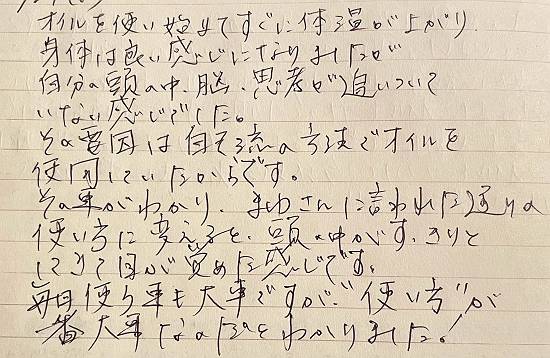 オイルを使い始めてすぐに体温が上がり
身体は良い感じになりましたが
自分の頭の中、脳、思考が追いついて
いない感じでした。
その要因は自己流の方法でオイルを
使用していたからです。
その事がわかり、まゆさんに言われた通りの
使い方に変えると、頭の中がすっきりと
してきて目が覚めた感じです。
毎日使う事も大事ですが、"使い方"が
一番大事なのだとわかりました!